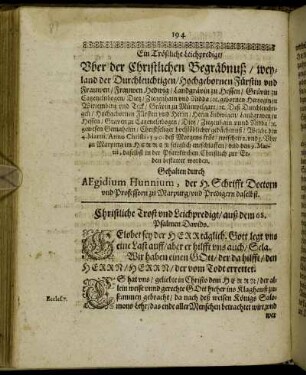 194
Ein Tröstliche Leichpredigt/
Vber der Christlichen Begräbnuß / wey-
land der Durchleuchtigen / Hochgebornen Fürstin vnd
Frauwen / Frauwen Hedwig / Landgrävin zu Hessen / Grävin zu
Catzenelnbogen / Dietz / Ziegenhain vnd Nidda / ꝛc. geborne Hertzogin zu
Würtemberg vnd Teck / Grävin zu Mümpelgart / ꝛc. Deß Durchleuchti-
gen / Hochgebornen Fürsten vnd Herrn / Herrn Ludwigen / Landgraven zu
Hessen / Graven zu Catzenelnbogen / Dietz / Ziegenhain vnd Nidda / ꝛc.
gewesen Gemahelin / Christseliger
4. Martii, Anno Christi
zu Marpurg im HERRN seliglich entschlaffen / vnd den 7. Mar-
tij, daselbst in der Pfarrkirchen Christlich zur Er-
den bestattet worden.
Gehalten durch
AEgidium Hunnium, der H. Schrifft Doctorn
vnd Professorn zu Marpurg / vnd Predigern daselbst.
Christliche Trost vnd Leichpredigt / auß dem 68.
Psalmen Davids.
Gelobet sey der HERR täglich. Gott legt vns
eine Last auff / aber er hilfft vns auch / Sela.
Wir haben einen GOtt / der da hilfft / den
HERRN / HERRN / der vom Todt errettet.
Eccles. 7.
ES hat vns / geliebte in Christo dem HERRN / der al-
lein weise vnnd gerechte GOtt hieher ins Klaghauß zu-
sammen gebracht / da nach deß weisen Königs Salo-
mons lehr / das ende aller Menschen betrachtet wirt / vnd
wer